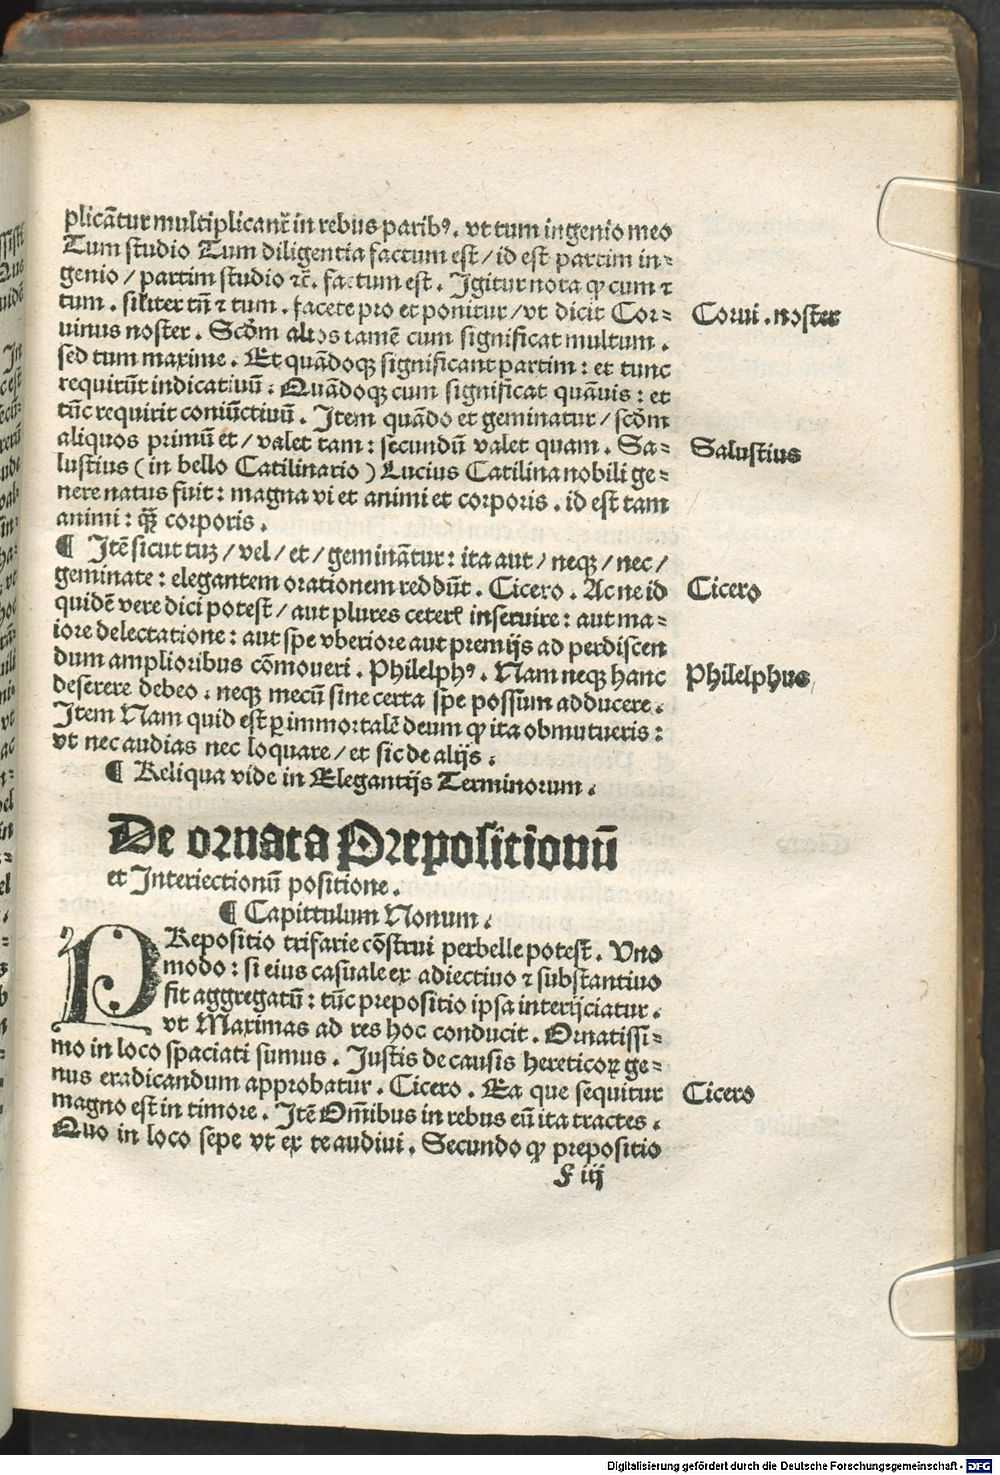 plicãtur multiplicanť in rebus paribꝰ. vt tum ingenio meo
Tum studio Tum diligentia factum est / id est partim in⸗
genio / partim studio ⁊c̃. factum est. Igitur nota ꝙ cum ⁊
tum. siliter tñ ⁊ tum. facete pro et ponitur / vt dicit Cor⸗
Corui. noster
uinus noster. Scðm alios tamẽ cum significat multum.
sed tum maxime. Et quãdoqꝫ significant partim : et tunc
requirũt indicatiuũ. Quãdoqꝫ cum significat quãuis : et
tũc requirit coniũctiuũ. Item quãdo et geminatur / scðm
aliquos primũ et / valet tam : secundũ valet quam. Sa⸗
Salustius
lustius ( in bello Catilinario ) Lucius Catilina nobili ge⸗
nere natus fuit : magna vi et animi et corporis. id est tam
animi : qꝫ̃ corporis.
¶ Itẽ sicut tuꝫ / vel / et / geminãtur : ita aut / neqꝫ / nec /
geminate : elegantem orationem reddũt. Cicero. Ac ne id
Cicero
quidẽ vere dici potest / aut plures ceterꝭ inseruire : aut ma⸗
iore delectatione : aut spe vberiore aut premijs ad perdiscen
dum amplioribus cõmoueri. Philelphꝰ. Nam neqꝫ hanc
Philelphus
deserere debeo. neqꝫ mecũ sine certa spe possum adducere.
Item Nam quid est ꝑ immortalẽ deum ꝙ ita obmutueris :
vt nec audias nec loquare / et sic de alijs.
¶ Reliqua vide in Elegantijs Terminorum.
De ornata Prepositionũ
et Interiectionũ positione.
¶ Capittulum Nonum.
PRepositio trifarie cõstrui perbelle potest. Uno
modo : si eius casuale ex adiectiuo ⁊ substantiuo
fit aggregatũ : tũc prepositio ipsa interijciatur.
vt Maximas ad res hoc conducit. Ornatissi⸗
mo in loco spaciati sumus. Justis de causis hereticoꝝ ge⸗
nus eradicandum approbatur. Cicero. Ea que sequitur
Cicero
magno est in timore. Itẽ Om̃ibus in rebus eũ ita tractes.
Quo in loco sepe vt ex te audiui. Secundo ꝙ prepositio
F iij
Digitalisierung gefördert durch die Deutsche Forschungsgemeinschaft - DFG